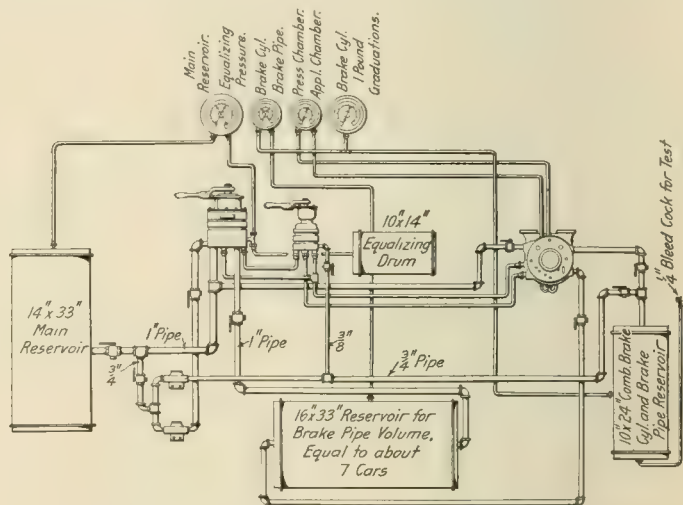 Main
Reservoir.
Equalizing
Pressure.
Brake Cyl.
Brake Pipe.
Press Chamber.
Appl. Chamber.
Brake Cyl.
1 Pound
Graduations.
10"x14"
Equalizing
Drum
14"x33"
Main
Reservoir
1" Pipe
3/4"
1" Pipe
3/8"
3/4" Pipe
16"x33" Reservoir for
Brake Pipe Volume,
Equal to about
7 Cars
10"x24" Comb. Brake
Cyl. and Brake
Pipe Reservoir
1/4" Bleed Cock for Test